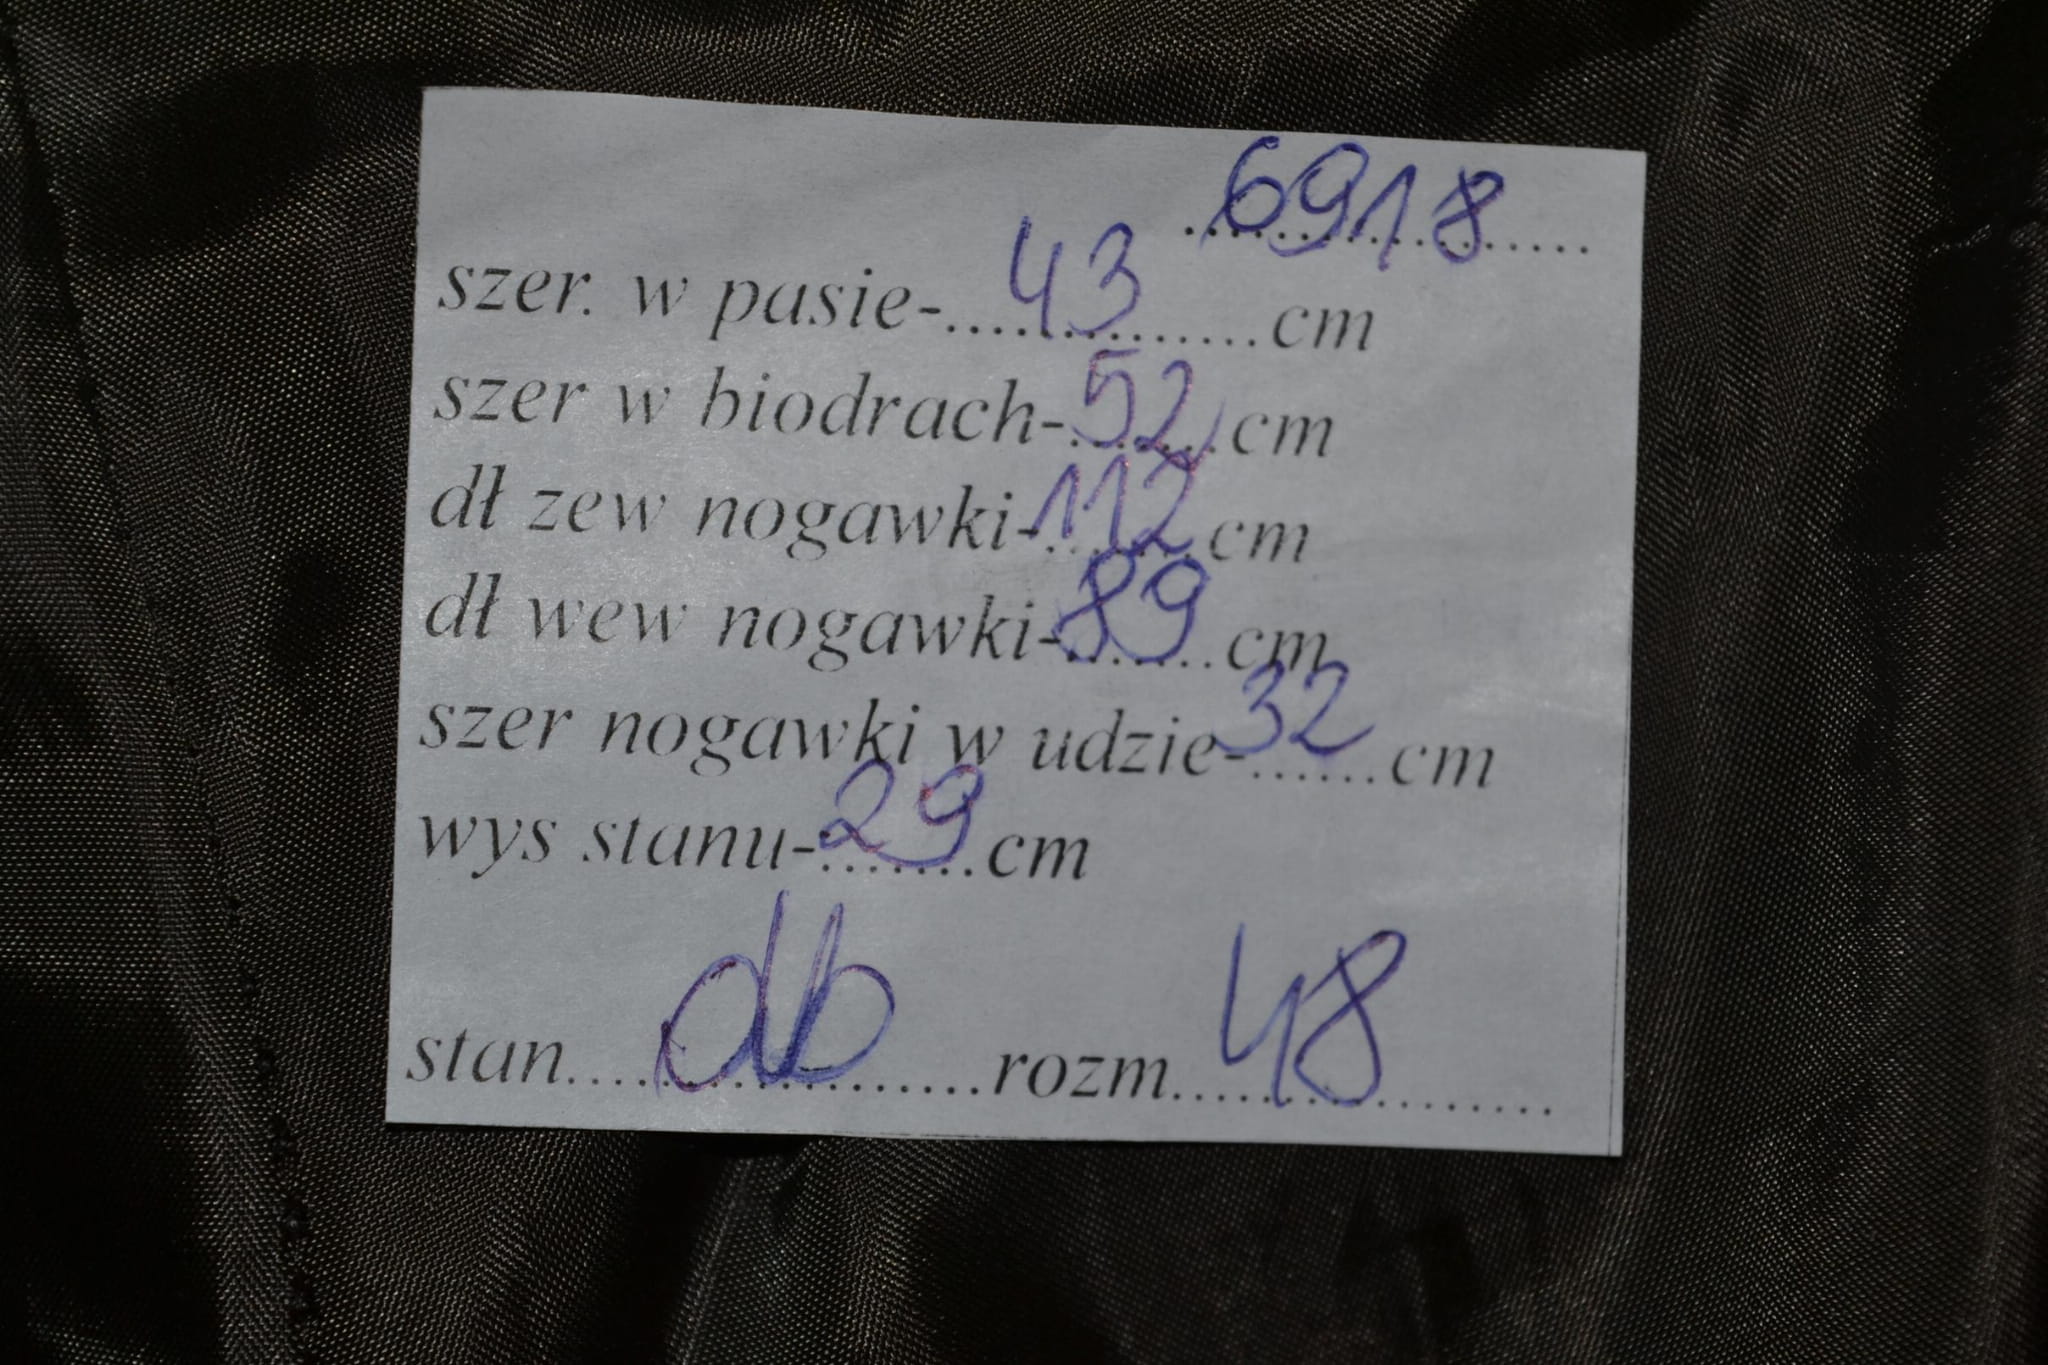 6918
szer. w pasie-....43....cm
szer w biodrach-52cm
dł zew nogawki-112cm
dł wew nogawki-89cm
szer nogawki w udzie-32cm
wys stanu-29cm
stan....db....rozm....48....